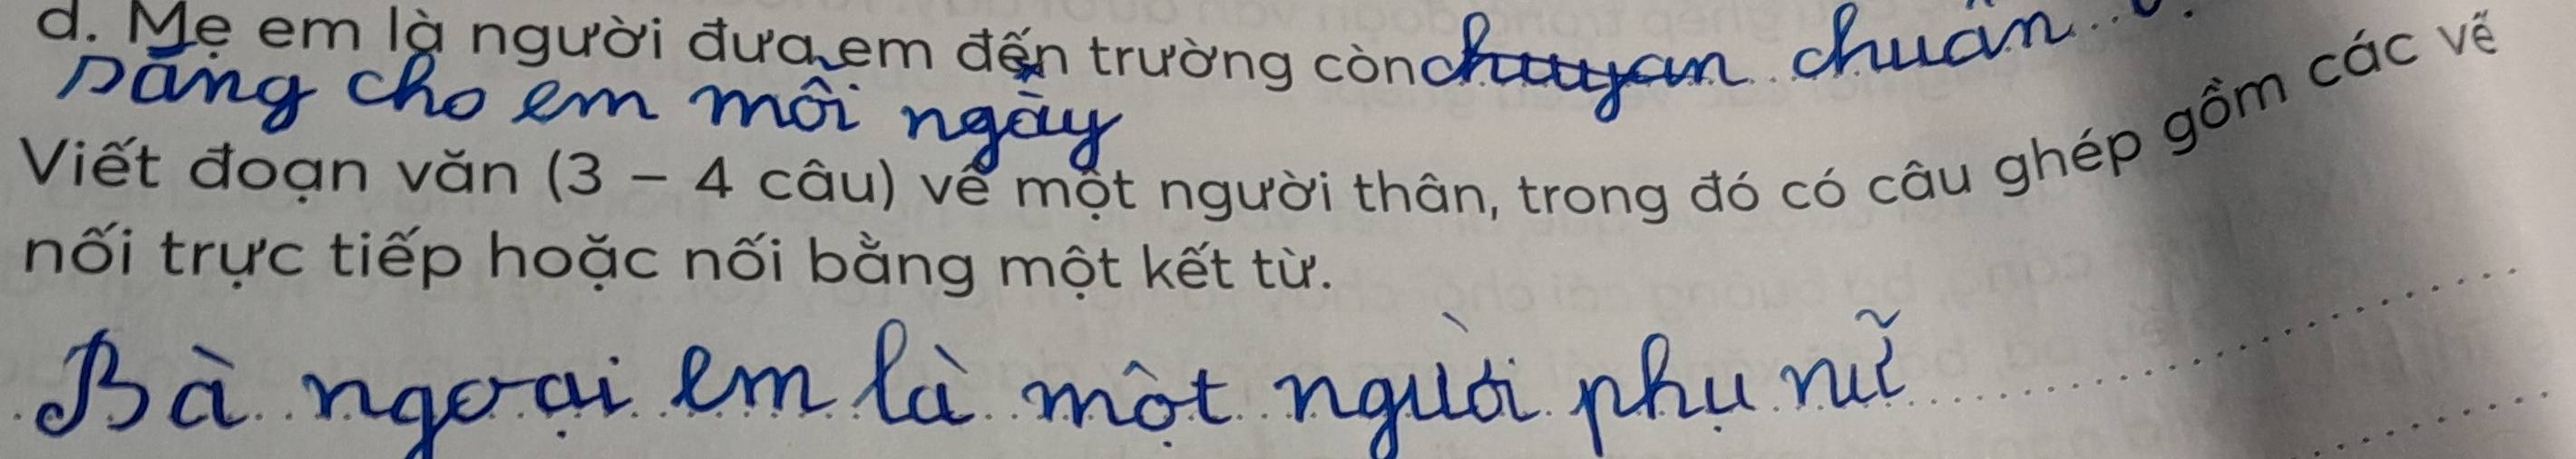 d. Mẹ em là người đưa em đến trường còn chuẩn
sáng cho em mỗi ngày
Viết đoạn văn (3 - 4 câu) về một người thân, trong đó có câu ghép gồm các vế
nối trực tiếp hoặc nối bằng một kết từ.
Bà ngoại em là một người phụ nữ